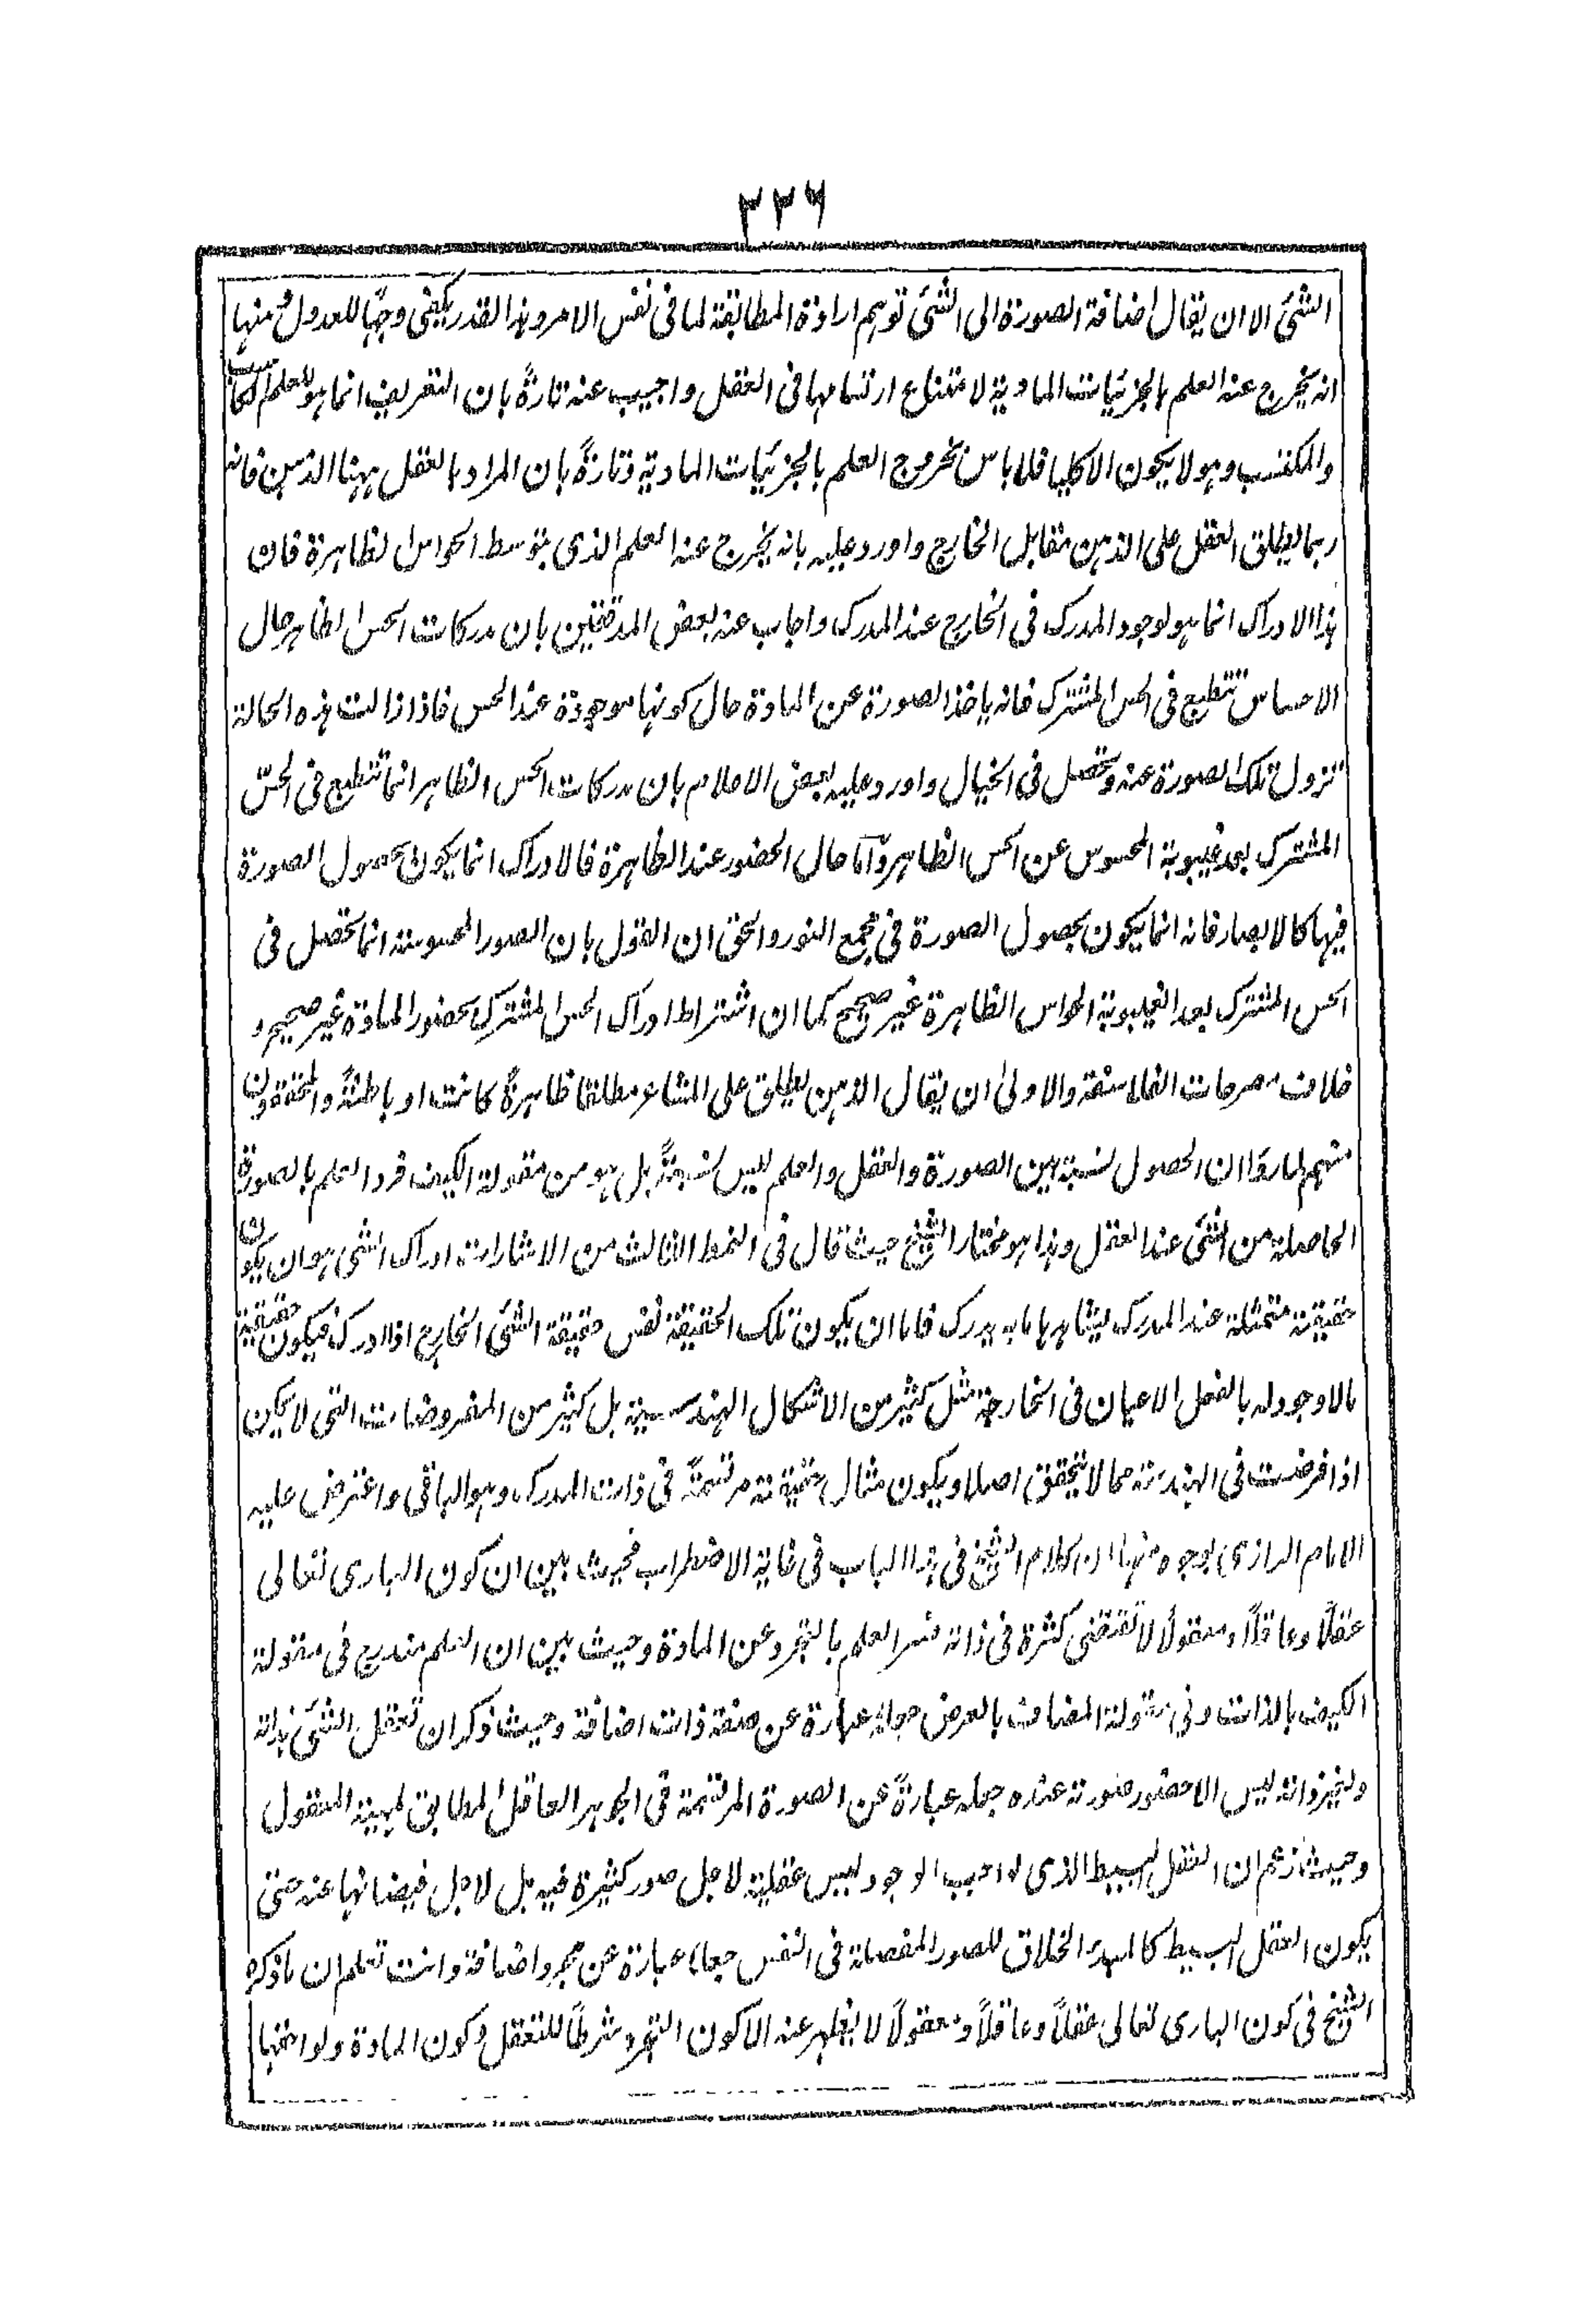 ٣٣٦
الشئ الا ان يقال اضافة الصورة الى الشئ توهم ارادة المطابقة لما فى نفس الامر وهذا القدر يكفى وجها للعدول ومنها
انه يخرج عنه العلم بالجزئيات المادية لامتناع ارتسامها فى العقل واجيب عنه تارةً بان التعريف انما هو للعلم الكاسب
والمكتسب وهو لا يكون الا كليا فلا باس بخروج العلم بالجزئيات المادية وتارةً بان المراد بالعقل ههنا الذهن فانه
ربما يطلق العقل على الذهن مقابل الخارج واورد عليه بانه يخرج عنه العلم الذى بتوسط الحواس الظاهرة فان
هذا الادراك انما هو لوجود المدرك فى الخارج عند المدرك واجاب عنه بعض المدققين بان مدركات الحس الظاهر حال
الاحساس تنطبع فى الحس المشترك فانه ياخذ الصورة عن المادة حال كونها موجودة عند الحس فاذا زالت هذه الحالة
تزول تلك الصورة عنه وتحصل فى الخيال واورد عليه بعض الاعلام بان مدركات الحس الظاهر انما تنطبع فى الحسّ
المشترك بعد غيبوبة المحسوس عن الحس الظاهر واما حال الحضور عند الظاهرة فالادراك انما يكون بحصول الصورة
فيها كالابصار فانه انما يكون بحصول الصورة فى مجمع النور والحق ان القول بان الصور المحسوسة انما تحصل فى
الحس المشترك بعد الغيبوبة الحواس الظاهرة غير صحيح كما ان اشتراط ادراك الحس المشترك بحضور المادة غير صحيح و
خلاف مصرحات الفلاسفة والاولىٰ ان يقال الذهن يطلق على المشاعر مطلقا ظاهرةً كانت او باطنةً والمحققون
منهم لما رؤا ان الحصول نسبة بين الصورة والعقل والعلم ليس نسبةً بل هو من مقولة الكيف فرد العلم بالصورة
الحاصلة من الشئ عند العقل وهذا هو مختار الشيخ حيث قال فى النمط الثالث من الاشارات ادراك الشئ هو ان يكون
حقيقته متمثلة عند المدرك يشاهدها ما به يدرك فاما ان يكون تلك الحقيقة نفس حقيقة الشئ الخارج اذا ادرك فيكون حقيقة
ما لا وجود له بالفعل الاعيان فى الخارجة مثل كثير من الاشكال الهندسية بل كثير من المفروضات التى لا يمكن
اذا فرضت فى الهندسة مما لا يتحقق اصلا او يكون مثال حقيقته مرتسمةً فى ذات المدرك وهو الباقى واعترض عليه
الامام الرازى بوجوه منها ان كلام الشيخ فى هذا الباب فى غاية الاضطراب فحيث بين ان كون البارى تعالى
عقلاً وعاقلاً ومعقولًا لا تقتضى كثرة فى ذاته فسر العلم بالتجرد عن المادة وحيث بين ان العلم مندرج فى مقولة
الكيف بالذات وفى مقولة المضاف بالعرض جعله عبارة عن صفة ذات اضافة وحيث ذكر ان تعقل الشئ لذاته
ولغير ذاته ليس الا حضور صورته عنده جعله عبارةً عن الصورة المرتسمة فى الجوهر العاقل المطابق لمهية المعقول
وحيث زعم ان العقل البسيط الذى لواجب الوجود ليس عقلية لاجل صور كثيرة فيه بل لاجل فيضانها عنه حتى
يكون العقل البسيط كالمبدء الخلاق للصور المفصلة فى النفس جعله عبارة عن مجرد اضافة وانت تعلم ان ما ذكره
الشيخ فى كون البارى تعالى عقلاً وعاقلاً ومعقولًا لا يظهر عنه الا كون التجرد شرطًا للتعقل وكون المادة ولواحقها